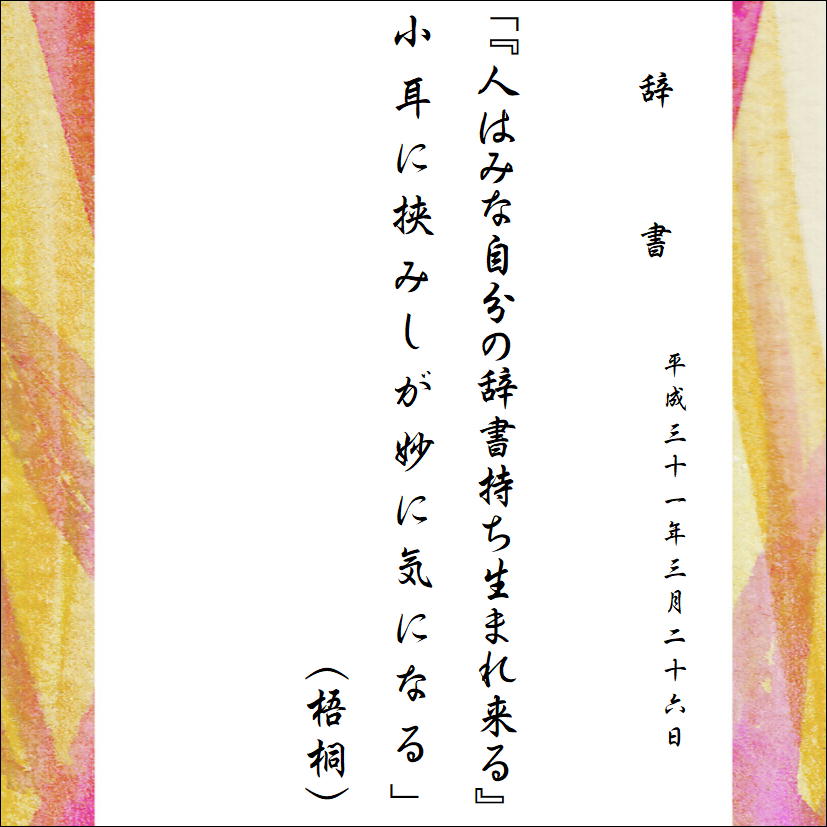 辞書
平成三十一年三月二十六日
「『人はみな自分の辞書持ち生まれ来る』
小耳に挟みしが妙に気になる」
(梧桐)